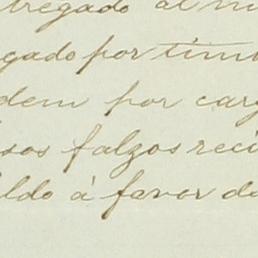 tregado al m
gado por tim
dem por carg
sos falzos reci
ldo à favor de